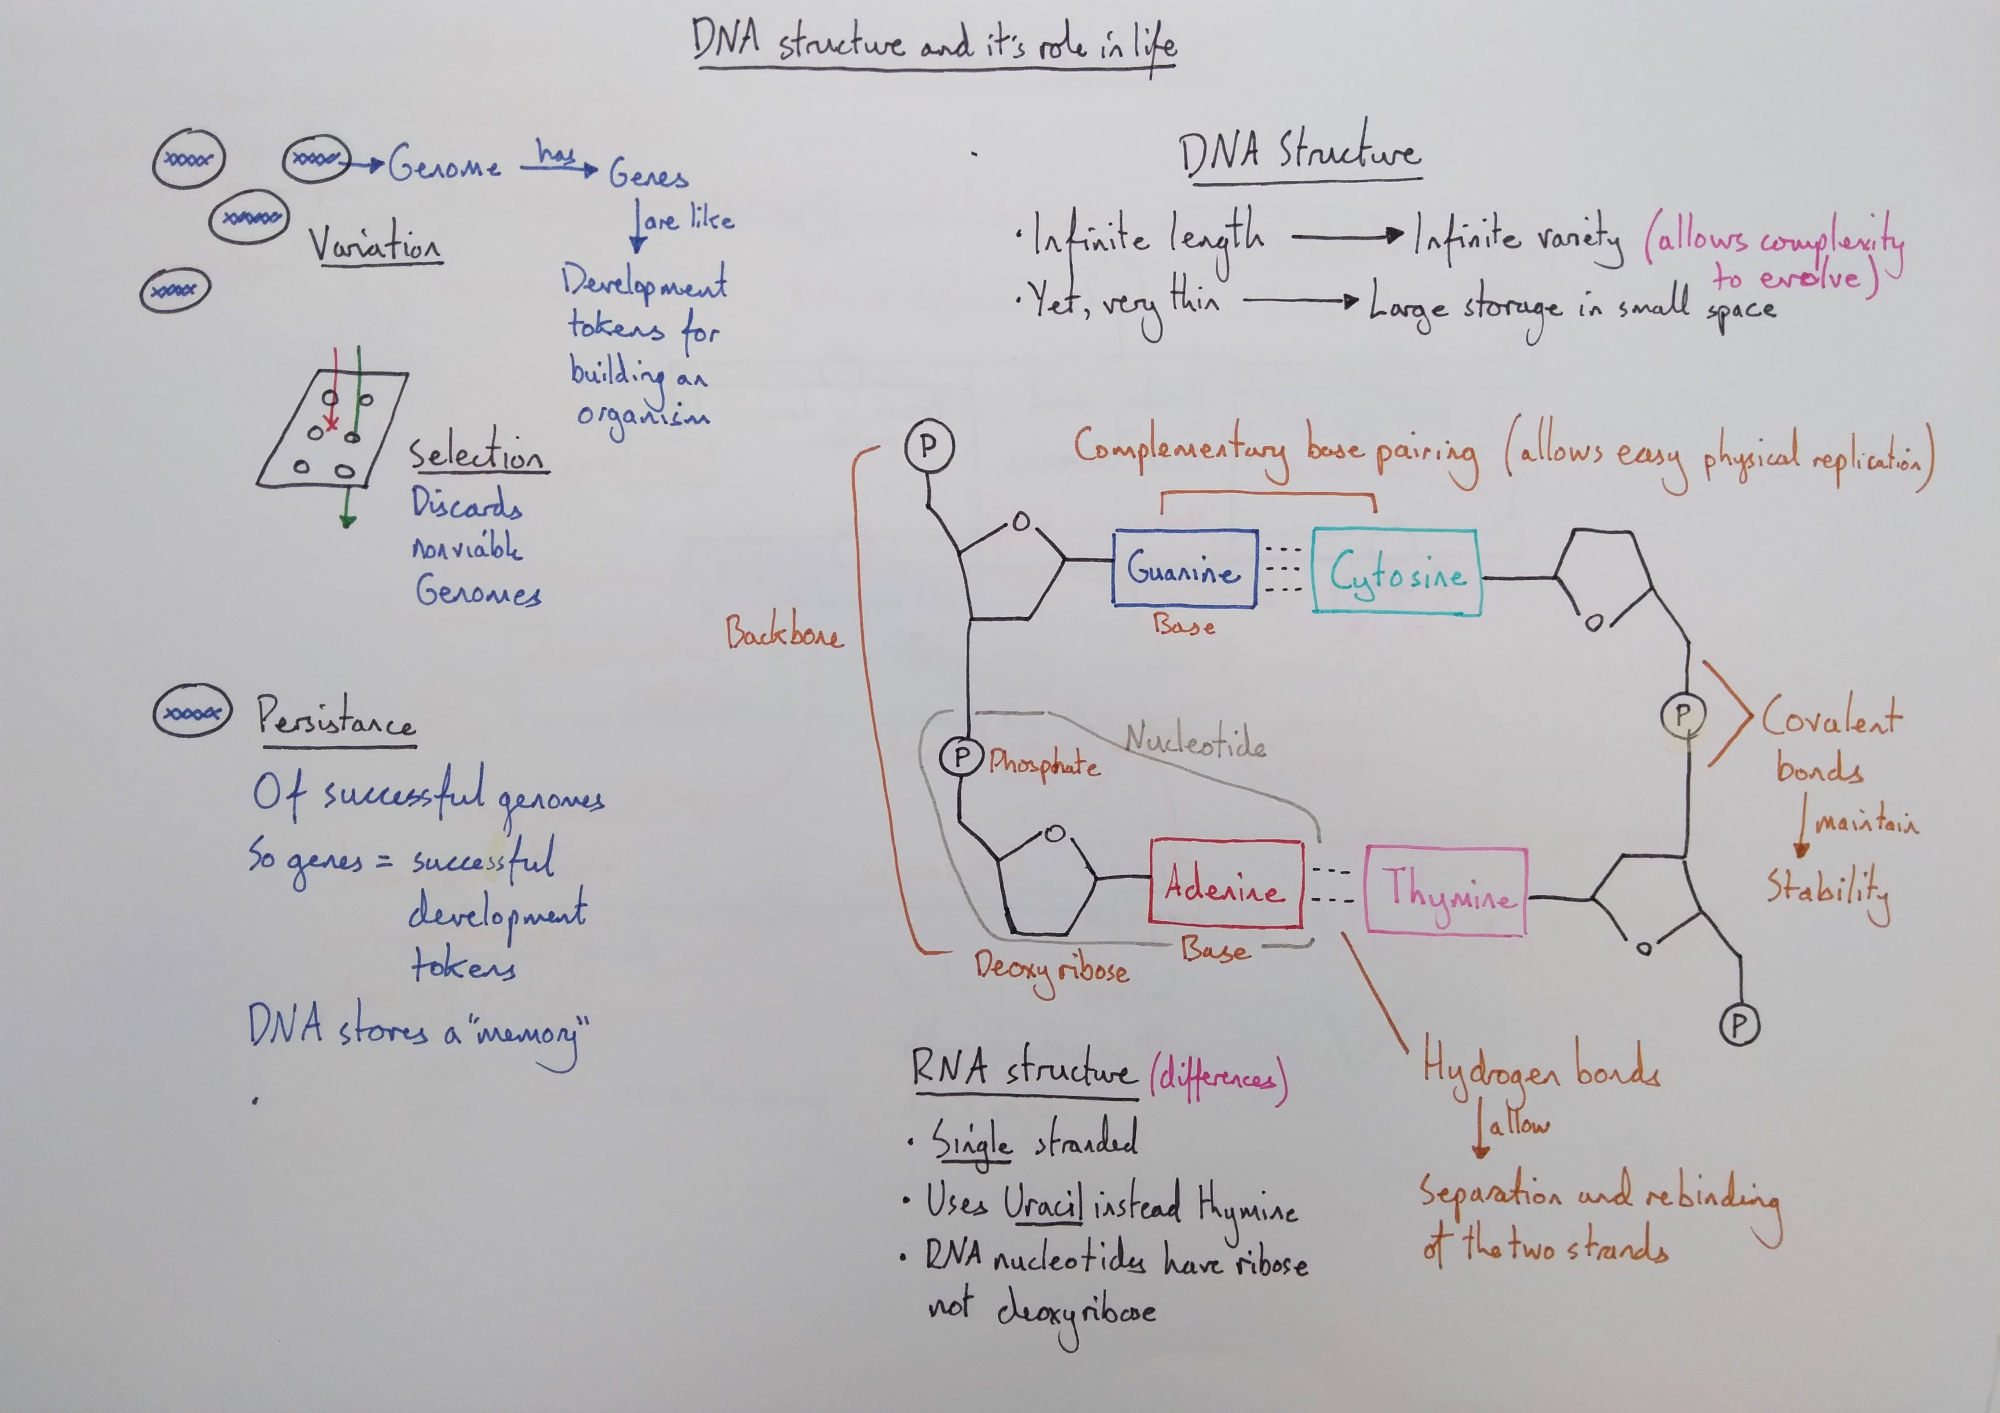 DNA structure and it's role in life
Genome has Genes
are like
Development
tokens for
building an
organism
Variation
Selection
Discards
nonviable
Genomes
Persistance
Of successful genomes
So genes = successful
development
tokens
DNA stores a "memory"
DNA Structure
· Infinite length Infinite variety (allows complexity
to evolve)
· Yet, very thin Large storage in small space
Complementary base pairing (allows easy physical replication)
P
O
Guanine
Cytosine
O
Base
Backbone
P
Phosphate
Nucleotide
P
Covalent
bonds
maintain
Stability
O
Adenine
Thymine
O
Base
Deoxyribose
P
Hydrogen bonds
allow
Separation and rebinding
of the two strands
RNA structure (differences)
· Single stranded
· Uses Uracil instead Thymine
· RNA nucleotides have ribose
not deoxyribose